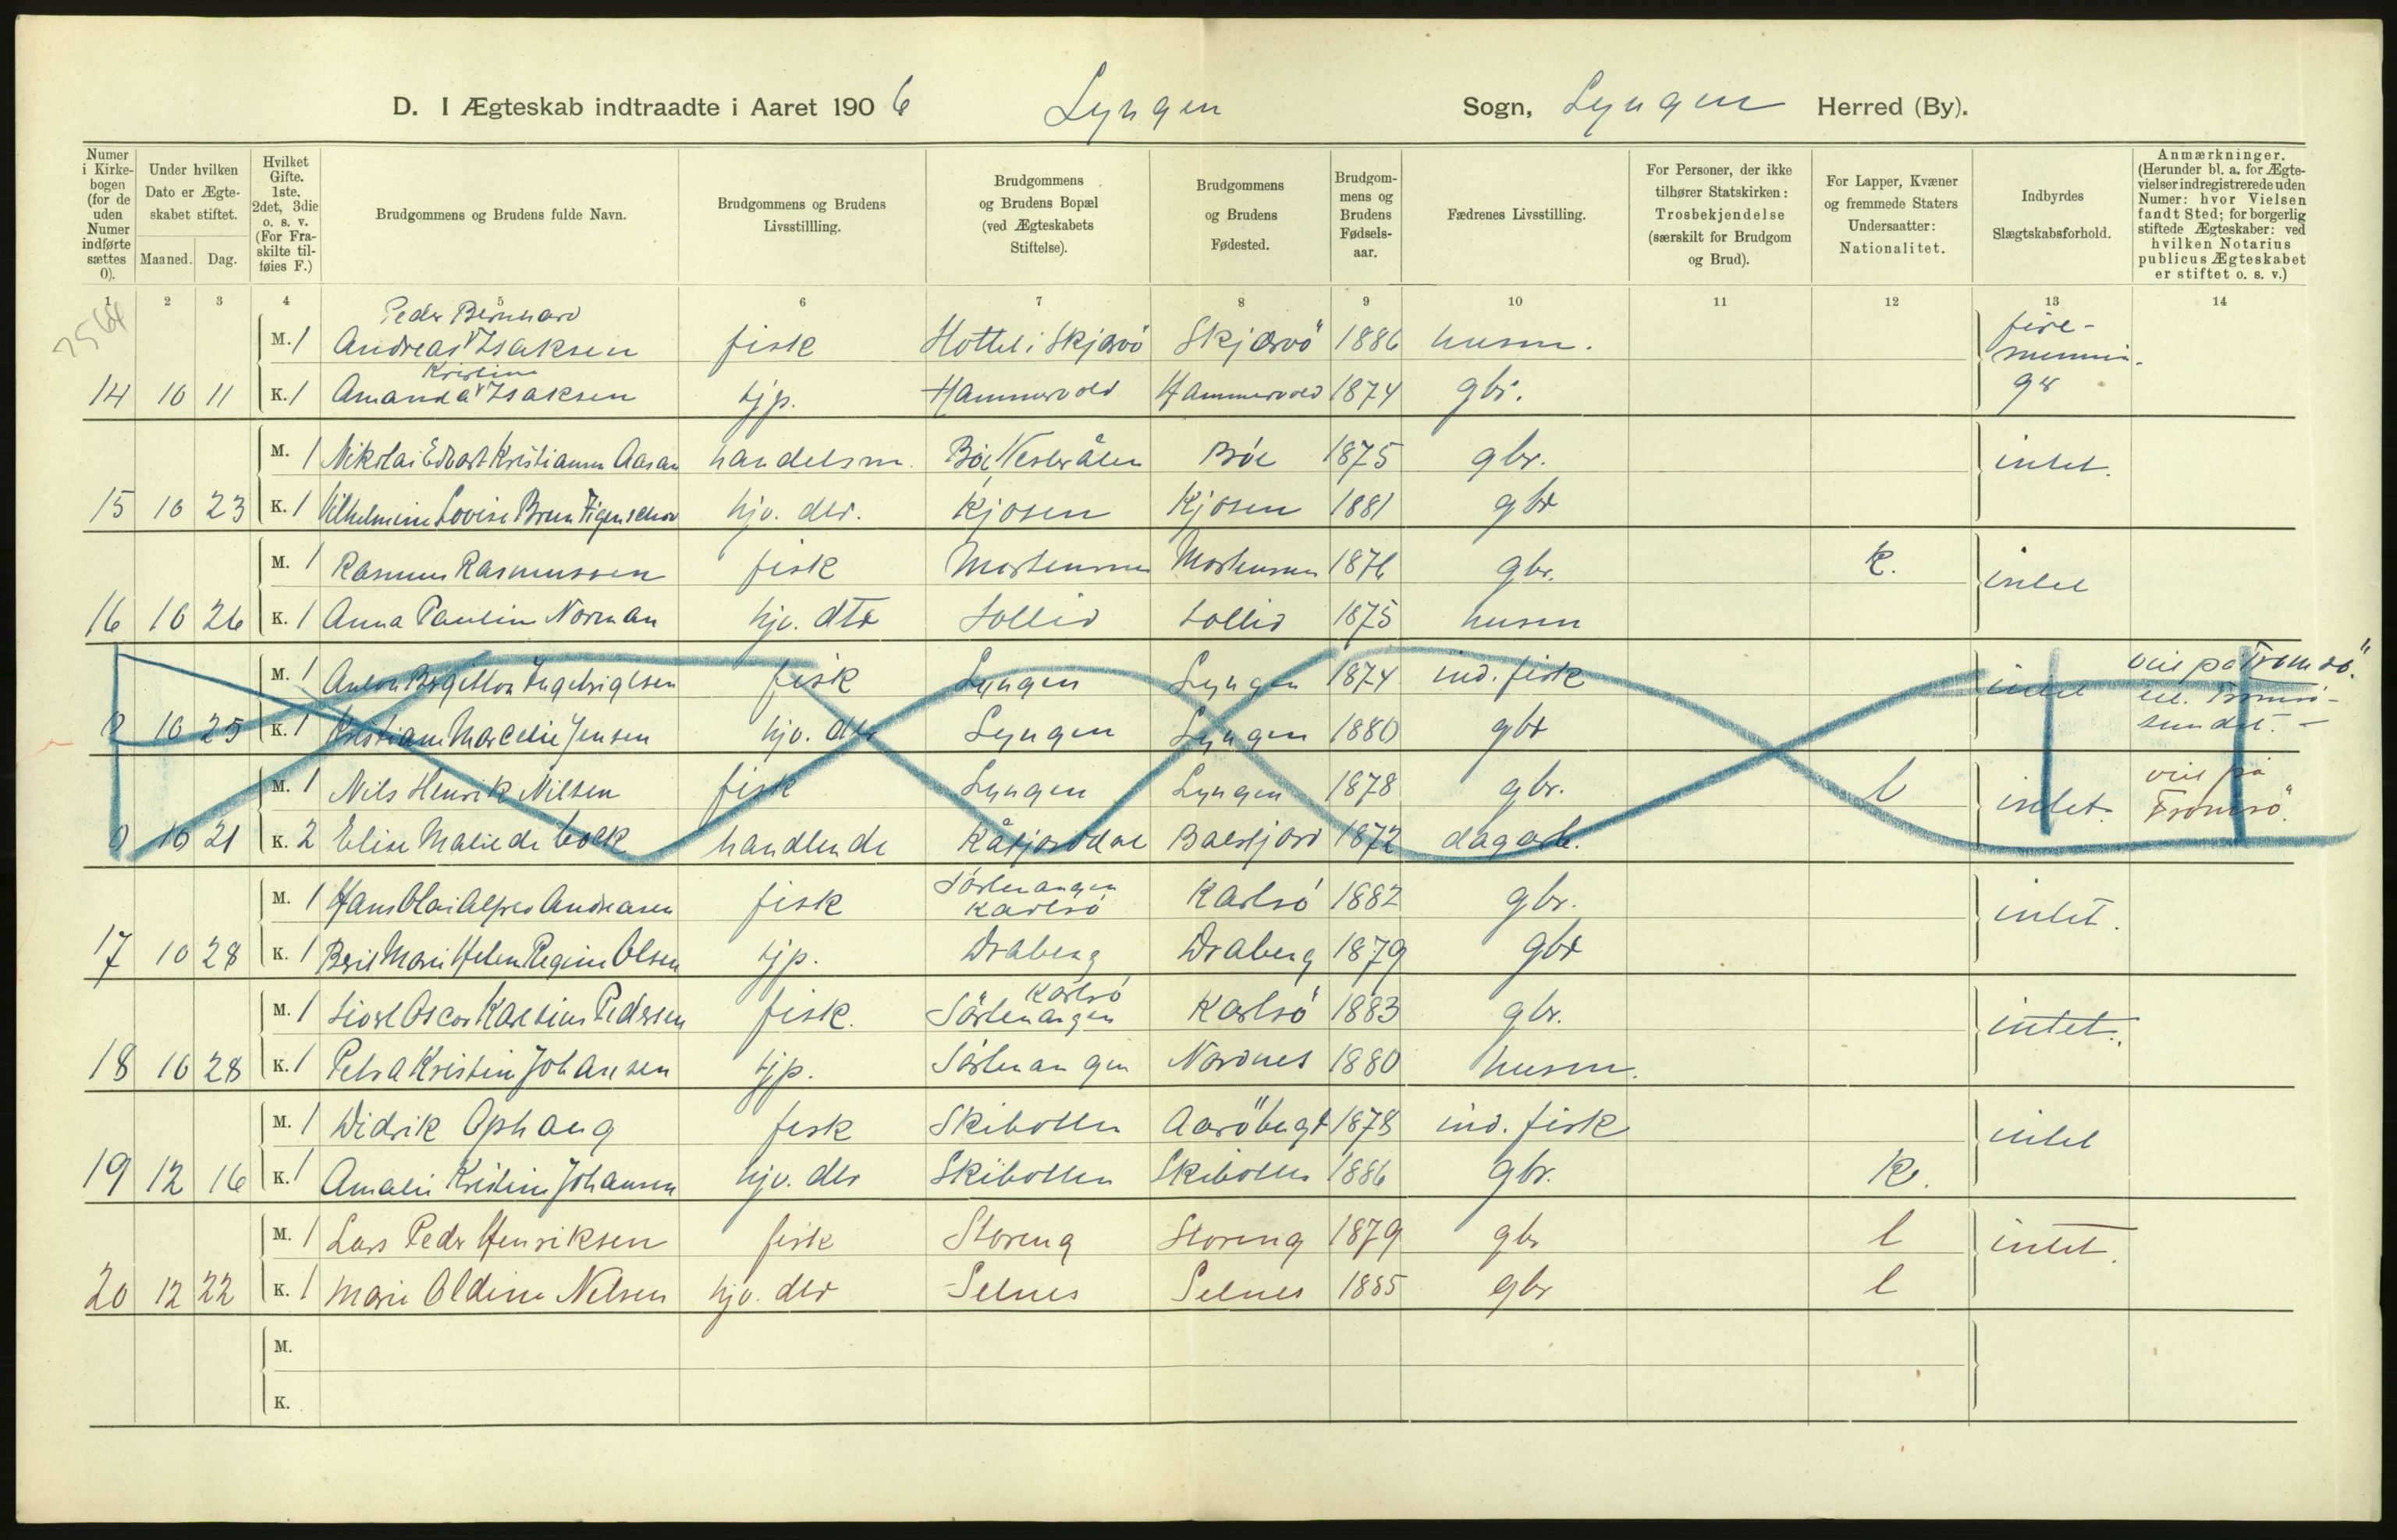 D. I Ægteskab indtraadte i Aaret 1906 Lyngen Sogn, Lyngen Herred (By).
Numer i Kirkebogen (for de uden Numer indførte sættes 0).
Under hvilken Dato er Ægteskabet stiftet.
Maaned. Dag.
Hvilket Gifte. 1ste, 2det, 3die o. s. v. (For Fraskilte tilføies F.)
Brudgommens og Brudens fulde Navn.
Brudgommens og Brudens Livsstillling.
Brudgommens og Brudens Bopæl (ved Ægteskabets Stiftelse).
Brudgommens og Brudens Fødested.
Brudgommens og Brudens Fødselsaar.
Fædrenes Livsstilling.
For Personer, der ikke tilhører Statskirken: Trosbekjendelse (særskilt for Brudgom og Brud).
For Lapper, Kvæner og fremmede Staters Undersaatter: Nationalitet.
Indbyrdes Slægtskabsforhold.
Anmærkninger. (Herunder bl. a. for Ægtevielser indregistrerede uden Numer: hvor Vielsen fandt Sted; for borgerlig stiftede Ægteskaber: ved hvilken Notarius publicus Ægteskabet er stiftet o. s. v.)
1 2 3 4 5 6 7 8 9 10 11 12 13 14
Peder Bernhard
M. 1 Andreas Isaksen fisk i Skjærvö Skjærvö 1886 husm. fire-
Kristine mennin-
14 10 11 K. 1 Amanda Isaksen tjp. Hammervold Hammervold 1874 gbr. gr
M. 1 Nikolai Edvart Kristiansen Aasan handelsm. Böe Vesterålen Böe 1875 gbr. intet.
15 10 23 K. 1 Vilhelmine Lovise Brun Figenschou hjv. dtr. Kjosen Kjosen 1881 gbr
M. 1 Rasmus Rasmussen fisk 1876 gbr. k. intet
16 10 26 K. 1 Anna Paulin Norman hjv. dtr Sollid Sollid 1875 husm
M. 1 Anton Ingebrigtsen fisk Lyngen Lyngen 1874 ind. fisk intet viet på Tromsö.
0 10 25 K. 1 Marcelie Jensen hjv. dtr Lyngen Lyngen 1880 gbr Tromsö-
sundet. —
M. 1 Nils Henrik Nilsen fisk Lyngen Lyngen 1878 gbr. l intet. viet på
0 10 21 K. 2 Elise Malie de Cock handlende Kåfjorddal Balsfjord 1872 dagarb. Tromsö.
M. 1 Hans Olai Alfred Andreasen fisk Sörlenangen Karlsö Karlsö 1882 gbr. intet.
17 10 28 K. 1 Berit Marie Helen Regine Olsen tjp. Draberg Draberg 1879 gbr
M. 1 Oscar Karelius Pedersen fisk. Sörlenangen Karlsö Karlsö 1883 gbr. intet.
18 10 28 K. 1 Petra Kristin Johansen tjp. Sörlenangen Nordnes 1880 husm.
M. 1 Didrik Ophaug fisk Skibotten Aaröbugt 1878 ind. fisk intet
19 12 16 K. 1 Amalie Kristine Johansen hjv. dtr Skibotten Skibotten 1886 gbr. k.
M. 1 Lars Peder Henriksen fisk Storeng Storeng 1879 gbr l intet.
20 12 22 K. 1 Marie Oldine Nilsen hjv. dtr Selnes Selnes 1885 gbr l
M.
K.